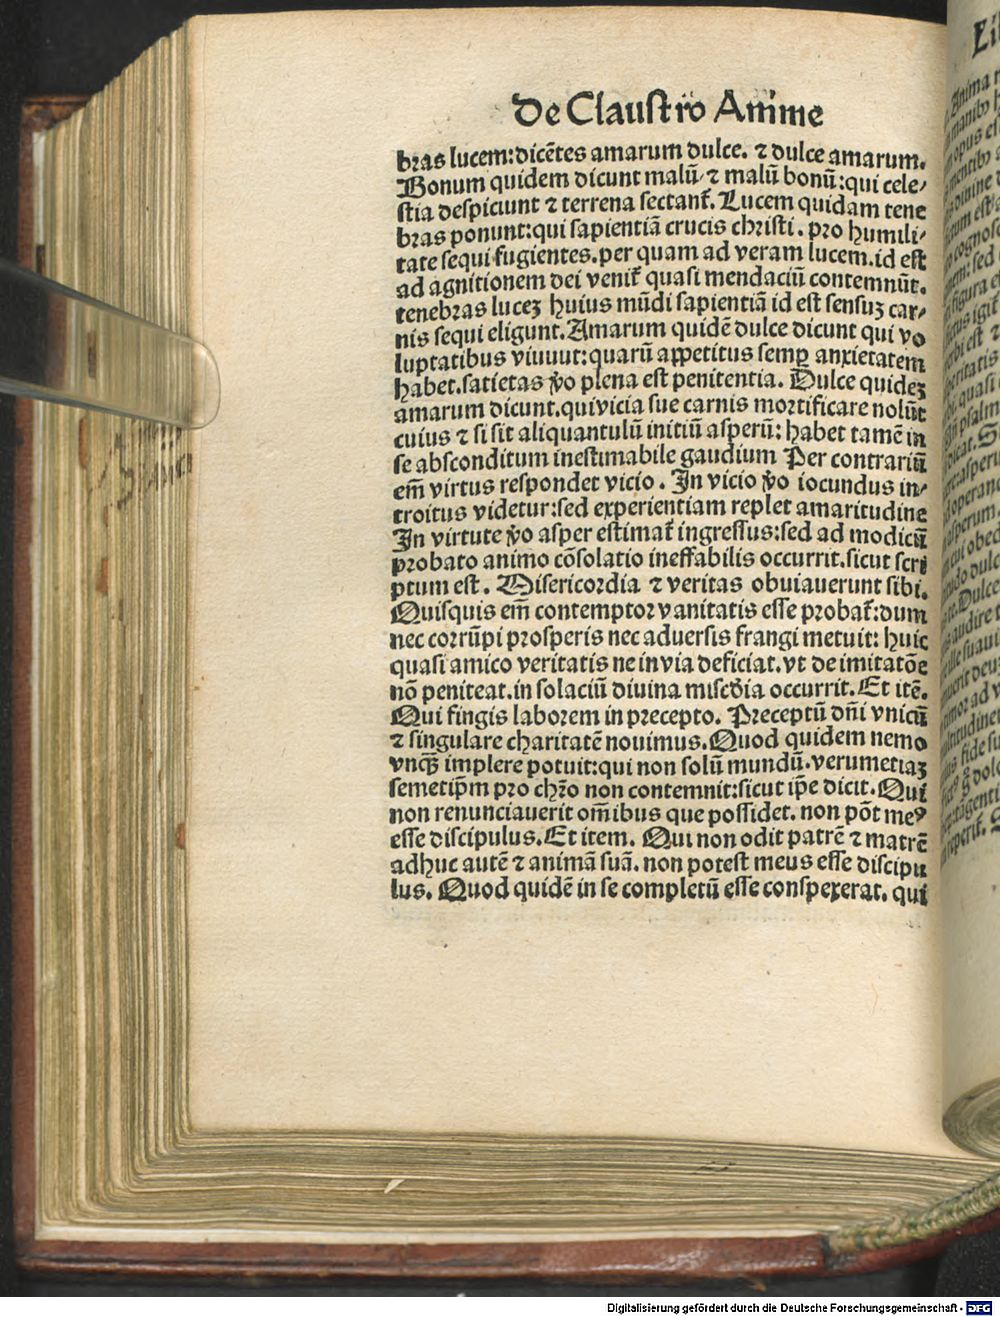 De Claustro Anime
bras lucem:dicẽtes amarum dulce. ⁊ dulce amarum.
Bonum quidem dicunt malũ/⁊ malũ bonũ:qui cele/
stia despiciunt ⁊ terrena sectant᷑. Lucem quidam tene
bras ponunt:qui sapientiã crucis christi. pro humili/
tate sequi fugientes.per quam ad veram lucem.id est
ad agnitionem dei venit᷑ quasi mendaciũ contemnũt.
tenebras luceꝫ huius mũdi sapientiã id est sensuꝫ car/
nis sequi eligunt.Amarum quidẽ dulce dicunt qui vo
luptatibus viuuut:quarũ appetitus semꝑ anxietatem
habet.satietas v̊o plena est penitentia. Dulce quideꝫ
amarum dicunt.quivicia sue carnis mortificare nolũt
cuius ⁊ si sit aliquantulũ initiũ asperũ: habet tamẽ in
se absconditum inestimabile gaudium Per contrariũ
em̃ virtus respondet vicio. In vicio v̊o iocundus in/
troitus videtur:sed experientiam replet amaritudine
In virtute v̊o asper estimat᷑ ingressus:sed ad modicũ
probato animo cõsolatio ineffabilis occurrit.sicut scri
ptum est. Misericordia ⁊ veritas obuiauerunt sibi.
Quisquis em̃ contemptor vanitatis esse probat᷑:dum
nec corrũpi prosperis nec aduersis frangi metuit: huic
quasi amico veritatis ne in via deficiat.vt de imitatõe
nõ peniteat.in solaciũ diuina mise᷑dia occurrit. Et itẽ.
Qui fingis laborem in precepto. Preceptũ dñi vnicũ
⁊ singulare charitatẽ nouimus.Quod quidem nemo
vnꝗ̃ implere potuit:qui non solũ mundũ.verumetiaꝫ
semetip̃m pro chr̃o non contemnit:sicut ip̃e dicit. Qui
non renunciauerit om̃ibus que possidet. non põt meꝰ
esse discipulus.Et item. Qui non odit patrẽ ⁊ matrẽ
adhuc autẽ ⁊ animã suã. non potest meus esse discipu
lus. Quod quidẽ in se completũ esse conspexerat. qui
Digitalisierung gefördert durch die Deutsche Forschungsgemeinschaft - DFG